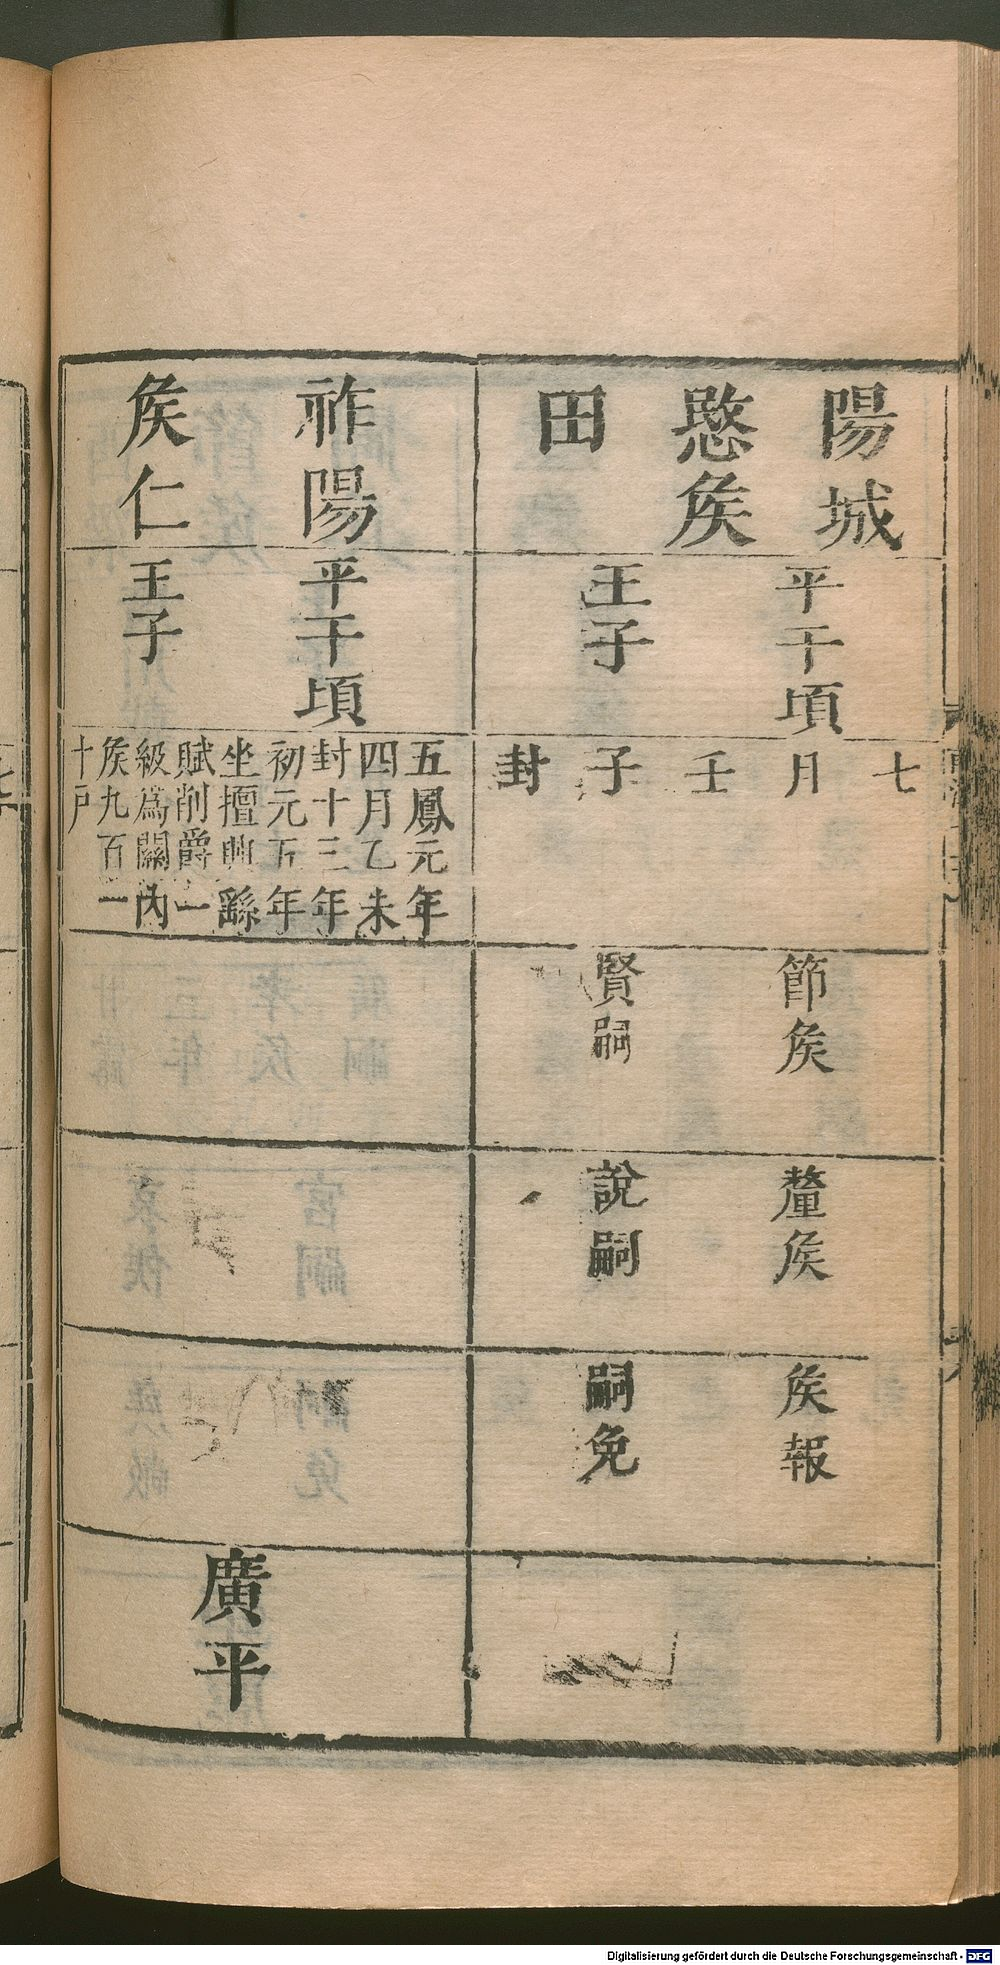 陽城
愍矦
田
平干頃
王子
七
月
壬
子
封
節矦
賢嗣
釐矦
說嗣
矦報
嗣免
祚陽
矦仁
平干頃
王子
五鳳元年
四月乙未
封十三年
初元五年
坐擅興繇
賦削爵一
級爲關內
矦九百一
十戶
廣平
Digitalisierung gefördert durch die Deutsche Forschungsgemeinschaft - DFG